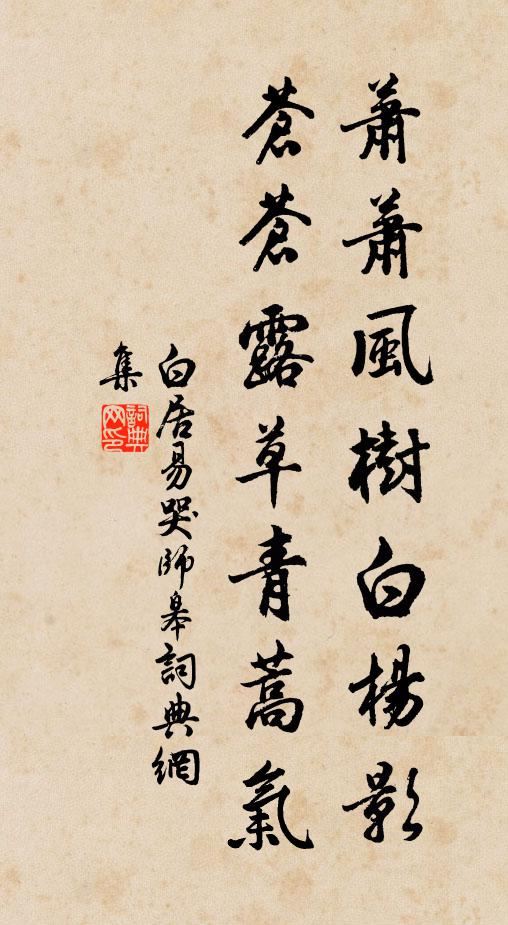 蕭蕭風樹白楊影
蒼蒼露草青蒿氣
白居易哭師皋詞典網
集
詞典
网印